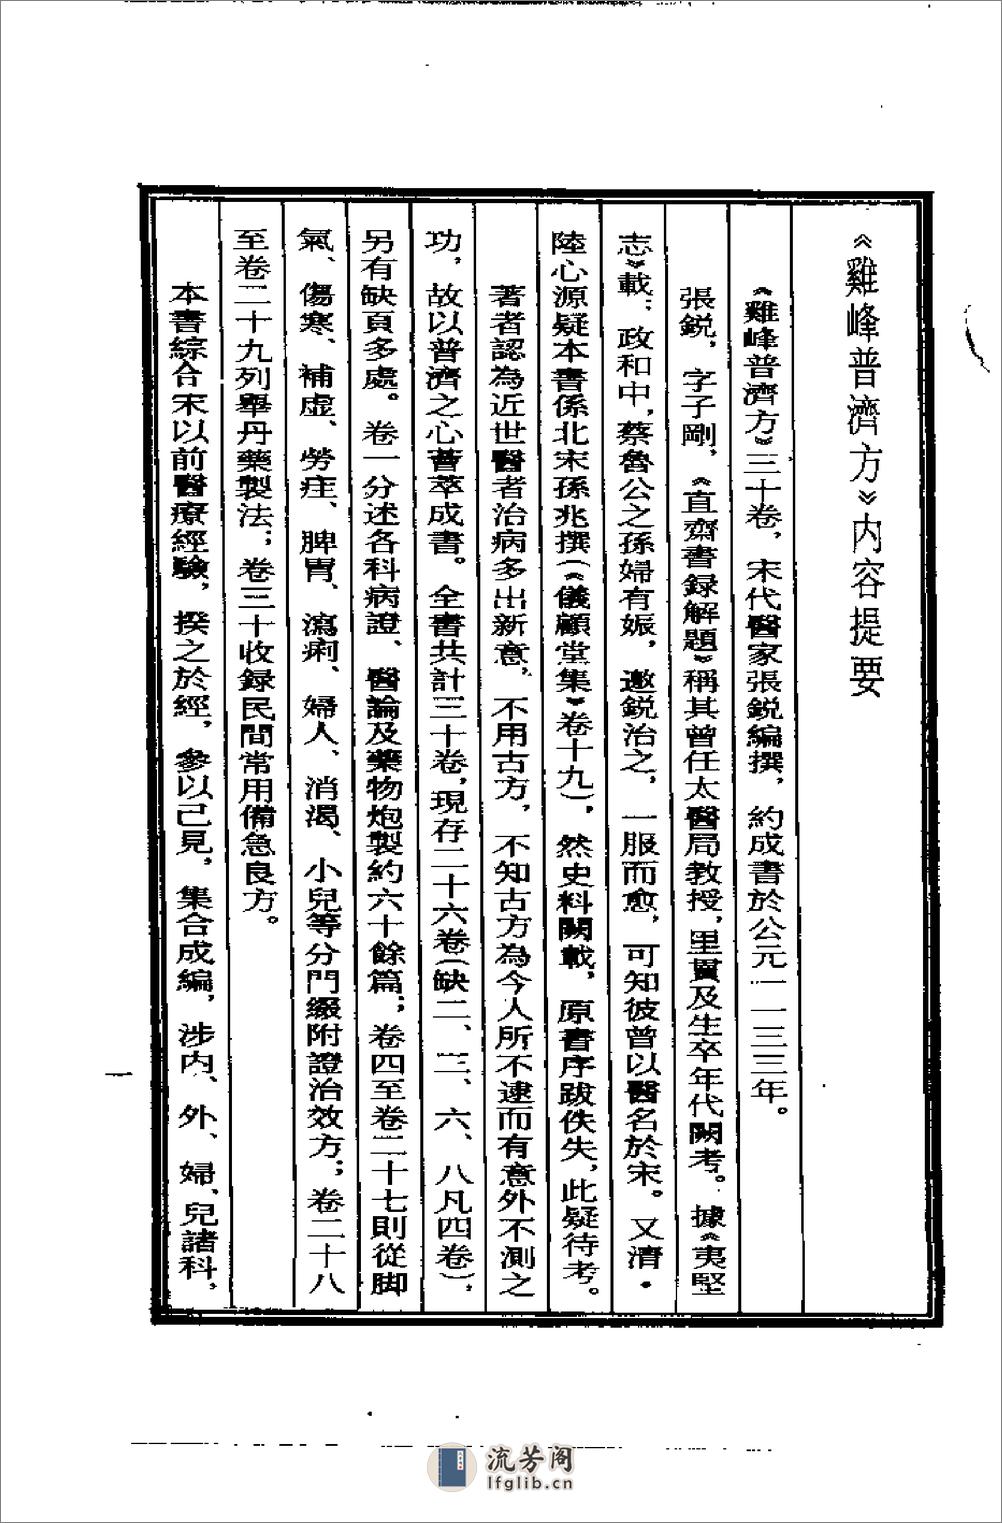 《雞峰普濟方》内容提要
《雞峰普濟方》三十卷，宋代醫家張鋭編撰，約成書於公元一一三三年。
張鋭，字子剛，《直齋書録解題》稱其曾任太醫局教授，里貫及生卒年代闕考。據《夷堅
志》載：政和中，蔡魯公之孫婦有娠，邀鋭治之，一服而愈，可知彼曾以醫名於宋。又清·
陸心源疑本書係北宋孫兆撰（《儀顧堂集》卷十九），然史料闕載，原書序跋佚失，此疑待考。
著者認為近世醫者治病多出新意，不用古方，不知古方為今人所不逮而有意外不測之
功，故以普濟之心薈萃成書。全書共計三十卷，現存二十六卷（缺二、三、六、八凡四卷），
另有缺頁多處。卷一分述各科病證、醫論及藥物炮製約六十餘篇；卷四至卷二十七則從脚
氣、傷寒、補虚、勞疰、脾胃、瀉痢、婦人、消渴、小兒等分門綴附證治效方；卷二十八
至卷二十九列舉丹藥製法；卷三十收録民間常用備急良方。
本書綜合宋以前醫療經驗，揆之於經，參以己見，集合成編，涉内、外、婦、兒諸科，
一
流芳阁
lfglib.cn